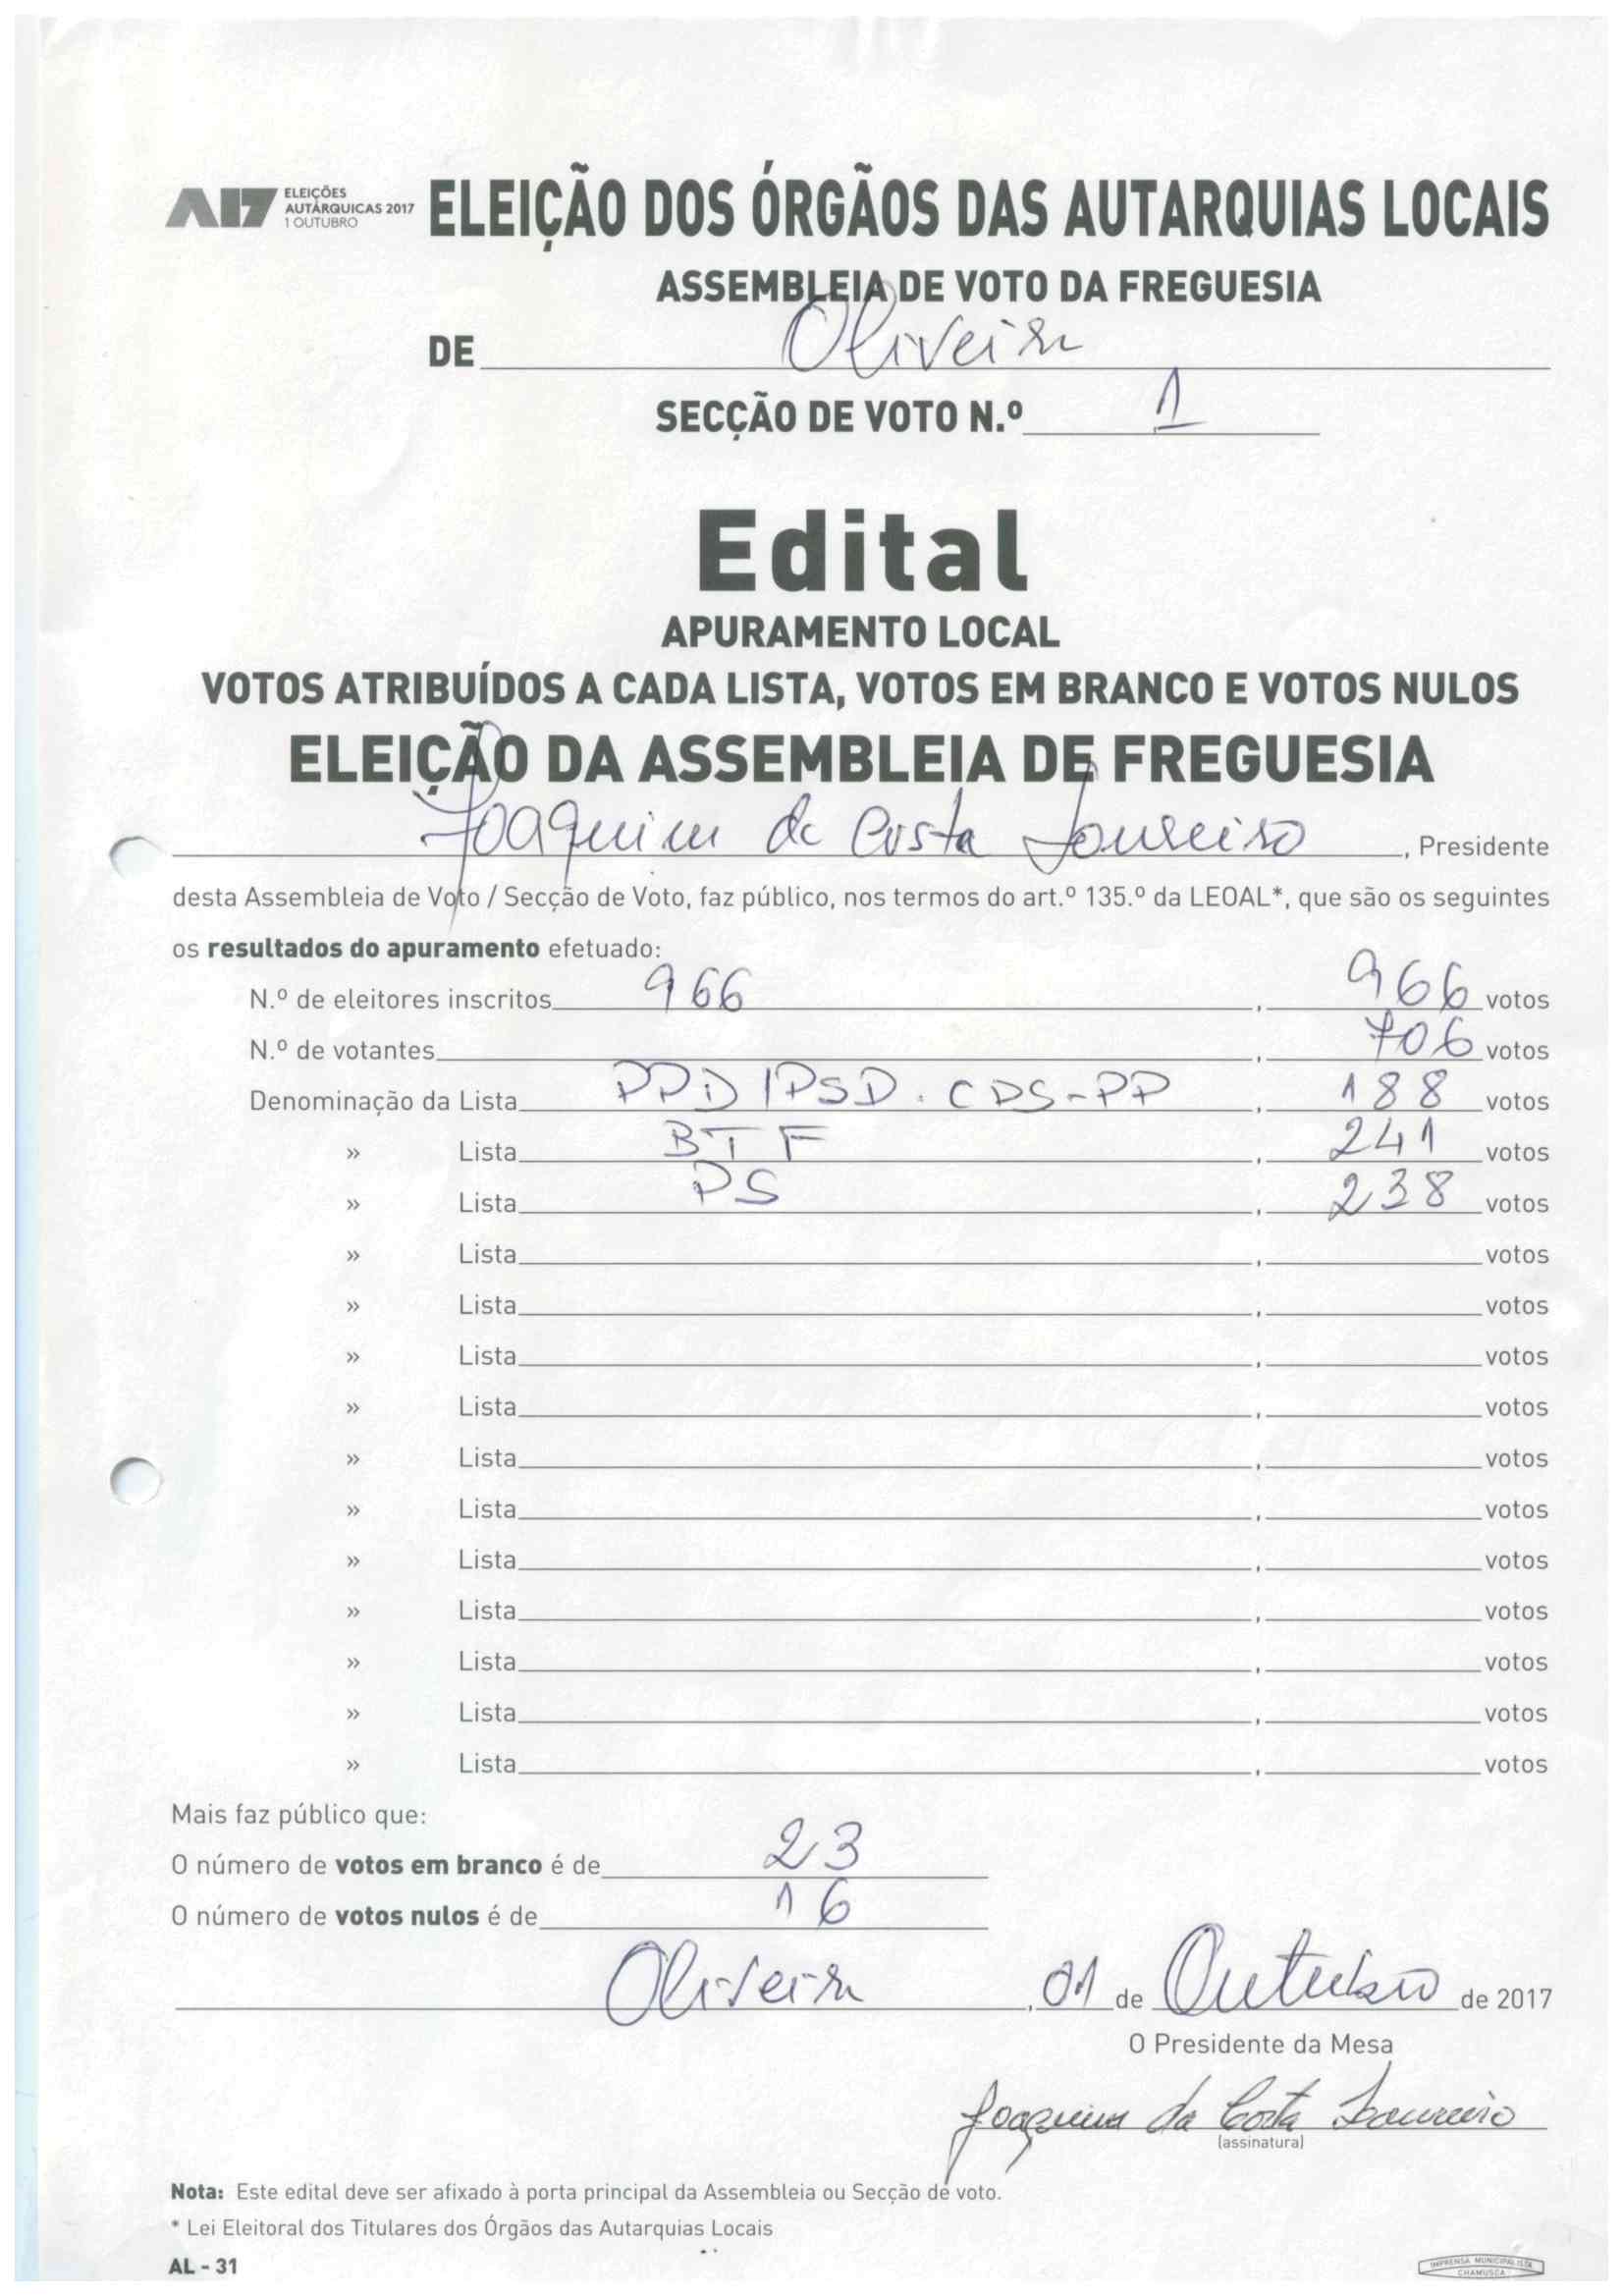 AI17 ELEIÇÕES
AUTÁRQUICAS 2017
1 OUTUBRO
ELEIÇÃO DOS ÓRGÃOS DAS AUTARQUIAS LOCAIS
ASSEMBLEIA DE VOTO DA FREGUESIA
DE Oliveira
SECÇÃO DE VOTO N.º 1
Edital
APURAMENTO LOCAL
VOTOS ATRIBUÍDOS A CADA LISTA, VOTOS EM BRANCO E VOTOS NULOS
ELEIÇÃO DA ASSEMBLEIA DE FREGUESIA
Joaquim da Costa Loureiro, Presidente
desta Assembleia de Voto / Secção de Voto, faz público, nos termos do art.º 135.º da LEOAL*, que são os seguintes
os resultados do apuramento efetuado:
N.º de eleitores inscritos 966, 966 votos
N.º de votantes, 706 votos
Denominação da Lista PPD/PSD.CDS-PP, 188 votos
» Lista BTF, 241 votos
» Lista PS, 238 votos
» Lista, votos
» Lista, votos
» Lista, votos
» Lista, votos
» Lista, votos
» Lista, votos
» Lista, votos
» Lista, votos
» Lista, votos
» Lista, votos
» Lista, votos
Mais faz público que:
O número de votos em branco é de 23
O número de votos nulos é de 16
Oliveira, 01 de Outubro de 2017
O Presidente da Mesa
Joaquim da Costa Loureiro
(assinatura)
Nota: Este edital deve ser afixado à porta principal da Assembleia ou Secção de voto.
* Lei Eleitoral dos Titulares dos Órgãos das Autarquias Locais
AL - 31
IMPRENSA MUNICIPALISTA
CHAMUSCA